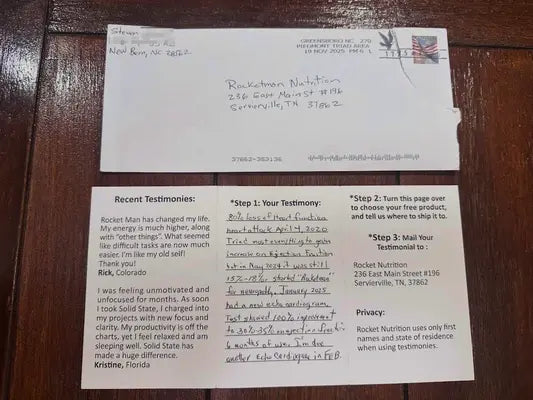 Steven
Rd
New Bern, NC 28562
GREENSBORO NC 270
PIEDMONT TRIAD AREA
19 NOV 2025 PM 6 L
Rocketman Nutrition
236 East Main St #196
Servierville, TN 37862
37862-353196
Recent Testimonies:
Rocket Man has changed my life.
My energy is much higher, along
with "other things". What seemed
like difficult tasks are now much
easier. I'm like my old self!
Thank you!
Rick, Colorado
I was feeling unmotivated and
unfocused for months. As soon
as I took Solid State, I charged into
my projects with new focus and
clarity. My productivity is off the
charts, yet I feel relaxed and am
sleeping well. Solid State has
made a huge difference.
Kristine, Florida
*Step 1: Your Testimony:
80% loss of Heart function
heart attack April 4, 2020
Tried most everything to gain
increase on ejection fraction
but in May 2024 it was still
15%-18%. started "Rocketman"
for neuropathy. January 2025
had a new echo cardiogram,
Test showed 100% improvement
to 30%-35% on ejection fraction
6 months of use. I'm due
another echo cardiogram in FEB.
*Step 2: Turn this page over
to choose your free product,
and tell us where to ship it.
*Step 3: Mail Your
Testimonial to :
Rocket Nutrition
236 East Main Street #196
Servierville, TN, 37862
Privacy:
Rocket Nutrition uses only first
names and state of residence
when using testimonies.